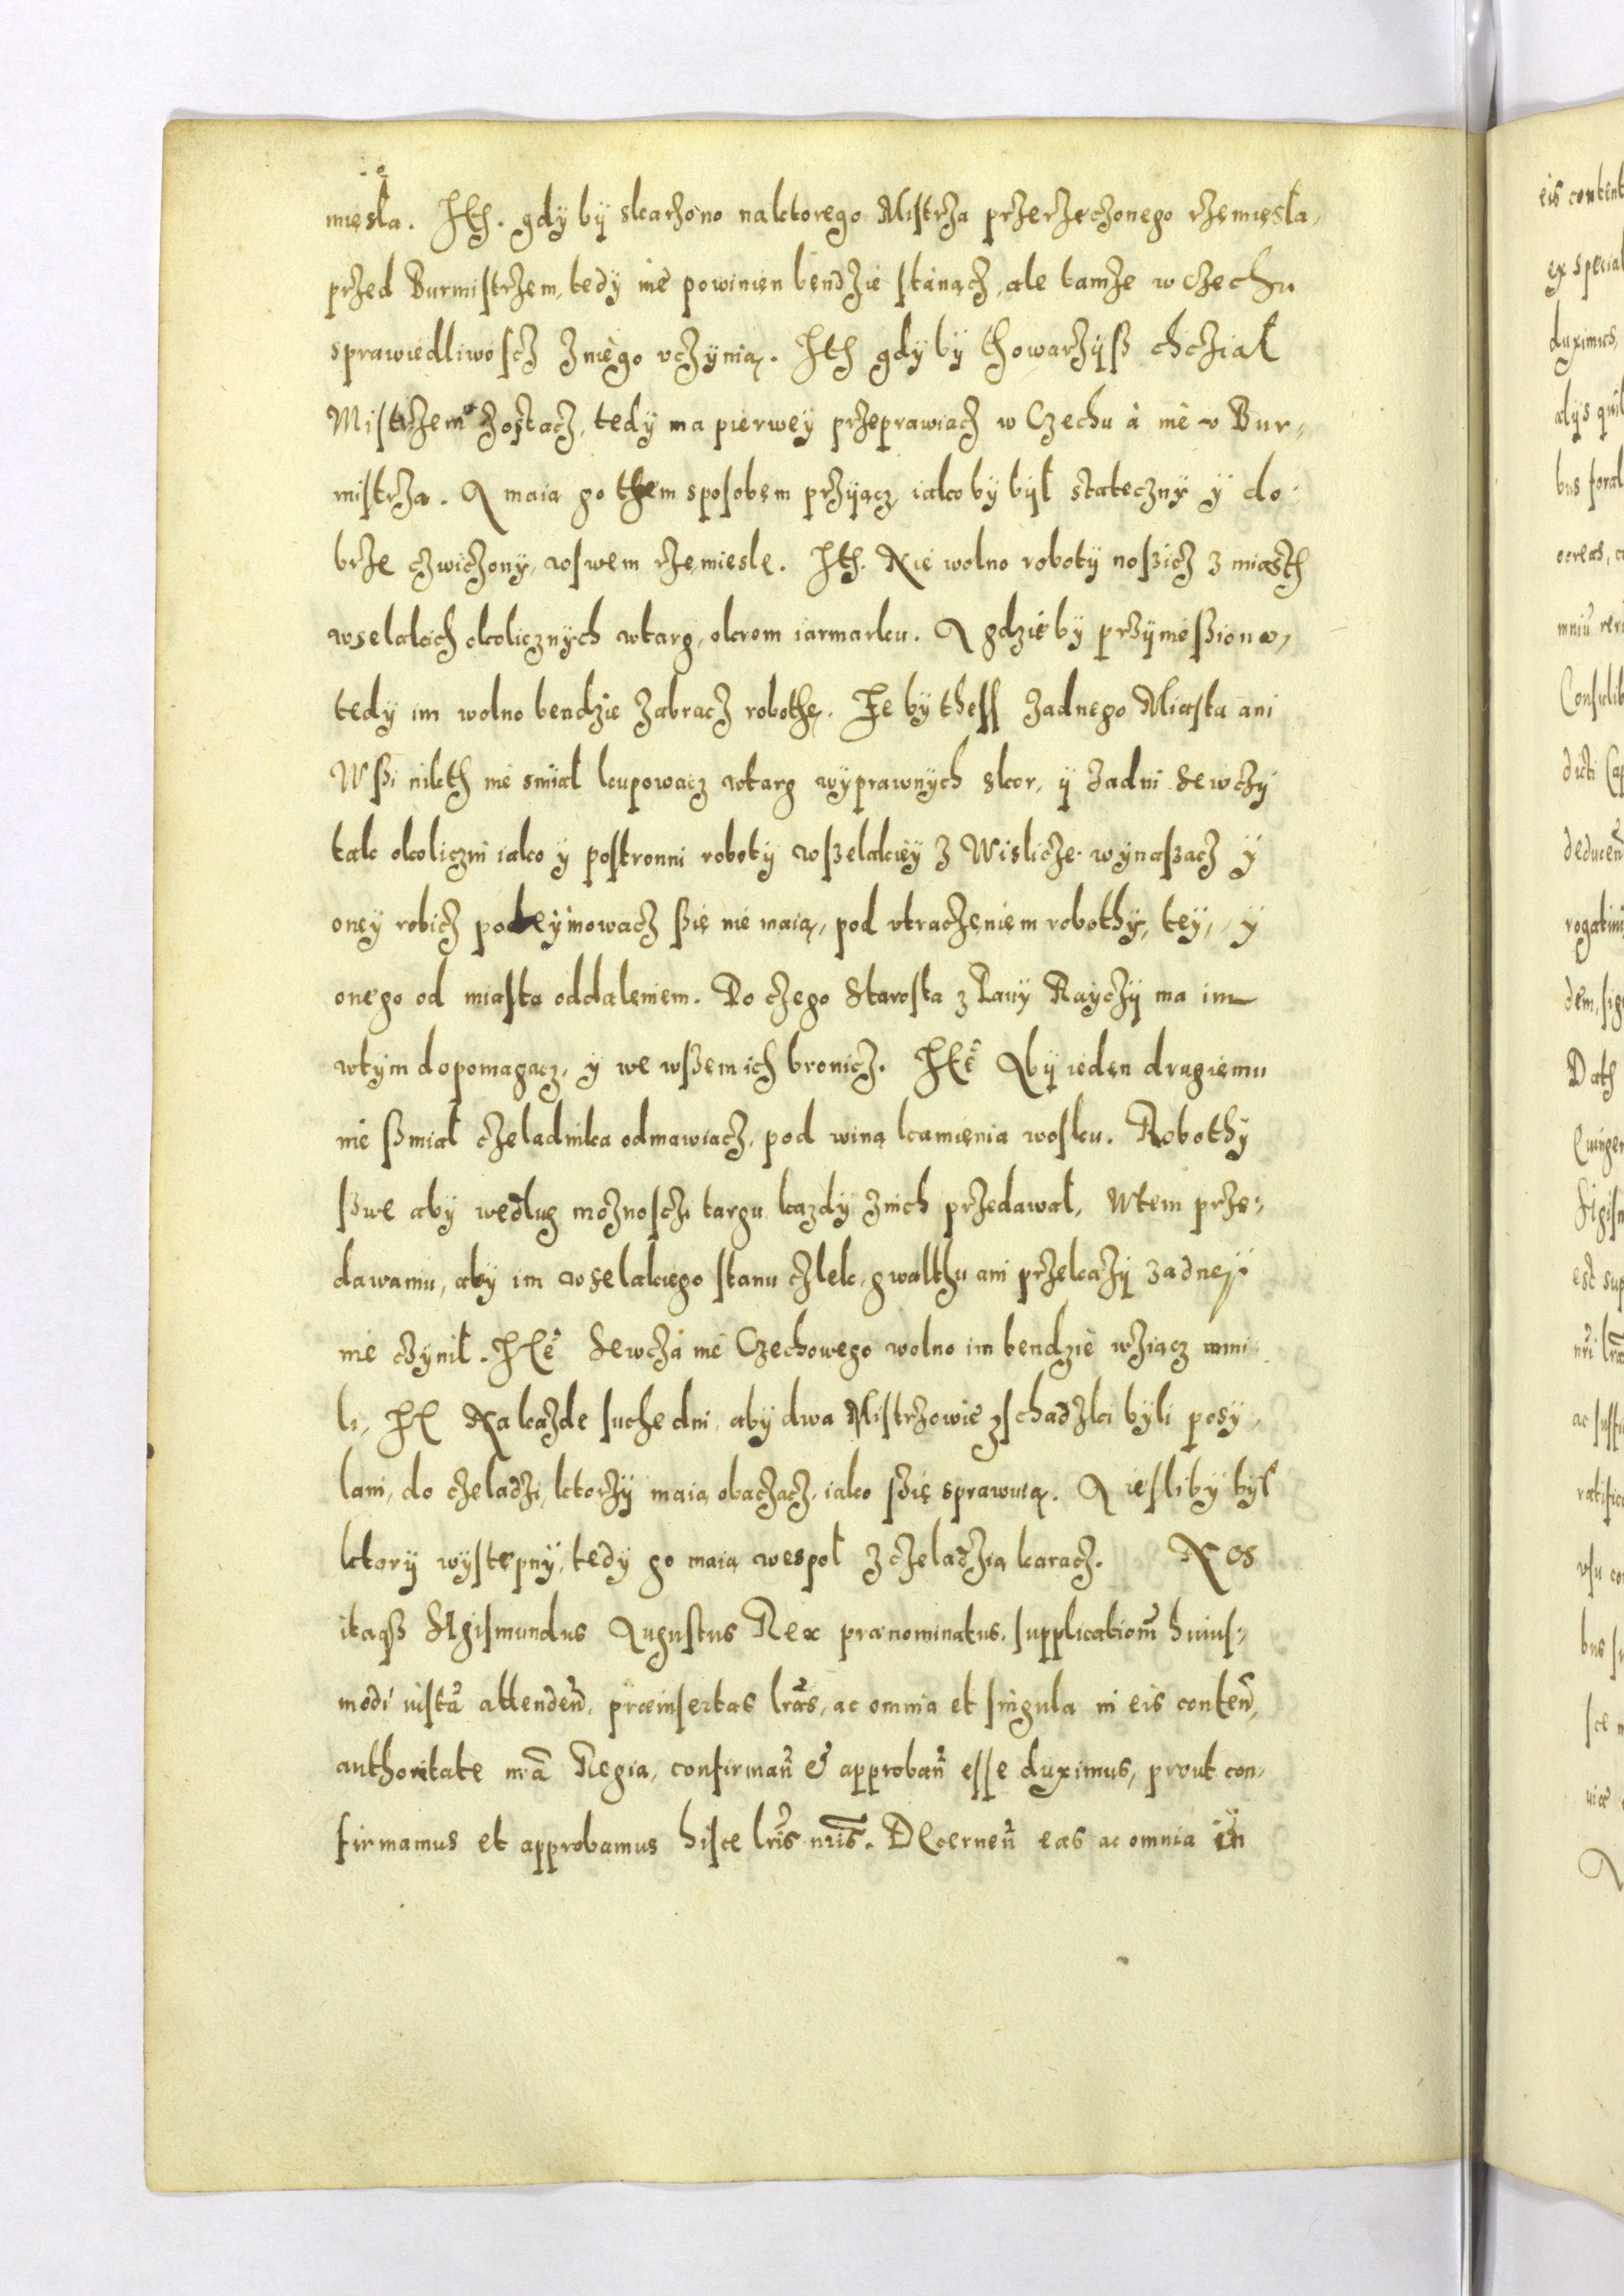 mięsła. Ith. gdÿ bÿ skarżono naktorego Mistrza przerzeczonego rzemięsła,
przed Burmistrzem, tedÿ nie powinien bendzie stanącz, ale tamże w czechu
sprawiedliwoscz zniego vczÿnią. Ith gdÿ bÿ thowarzÿß chcział
Mistrzem zostacz, tedÿ ma pierweÿ przeprawiacz w Czechu à niè v Bur,
mistrza. A maią go them sposobem przÿiącz, iako bÿ bÿł statecznÿ ÿ do,
brze czwiczonÿ, wswem rzemiesle. Ith. Nie wolno robotÿ noszicz z miasth
wselakich okolicznÿch wtarg, okrom iarmarku. A gdzie bÿ przÿnießiono,
tedÿ im wolno bendzie zabracz robothę. Że bÿ theß żadnego Miasta ani
Wßi nikth nie smiał kupowacz wtarg wÿprawnÿch skor, ÿ żadni Sewczÿ
tak okoliczni iako ÿ postronni robotÿ wszelakieÿ z Wislicze wÿnaszacz ÿ
oneÿ robicz podeÿmowacz ßię nie maią, pod vtraczeniem robothÿ, teÿ, ÿ
onego od miasta oddaleniem. Do czego Starosta z Panÿ Raÿczÿ ma im
wtÿm dopomagacz, ÿ we wßem ich bronicz. Ite Abÿ ieden drugiemu
nie ßmiał czeladnika odmawiacz, pod winą kamięnia wosku. Robothÿ
ßwe abÿ według możnosczi targu każdÿ znich przedawał, Wtem prze,
dawaniu, abÿ im wselakiego stanu człek, gwałthu ani przekazÿ żadneÿ
nie czÿnił. Ite Sewcza nie Czechowego wolno im bendzie wziącz wmi
li, It Na każde suche dni, abÿ dwa Mistrzowie zschadzki bÿli posÿ,
łani, do czeladzi, ktorzÿ maią obaczacz, iako ßię sprawuią. A iesli bÿ bÿł
ktorÿ wÿstepnÿ, tedÿ go maią wespoł z czeladzią karacz. Nos
itaqß Sigismundus Augustus Rex prænominatus, supplicationi huius,
modi iustæ attenden̄, præinsertas lras, ac omnia et singula in eis conten̄,
authoritate nrā Regia, confirman̄ & approban̄ esse duximus, prout con,
firmamus et approbamus hisce lris nris. Decernen̄ eas ac omnia in